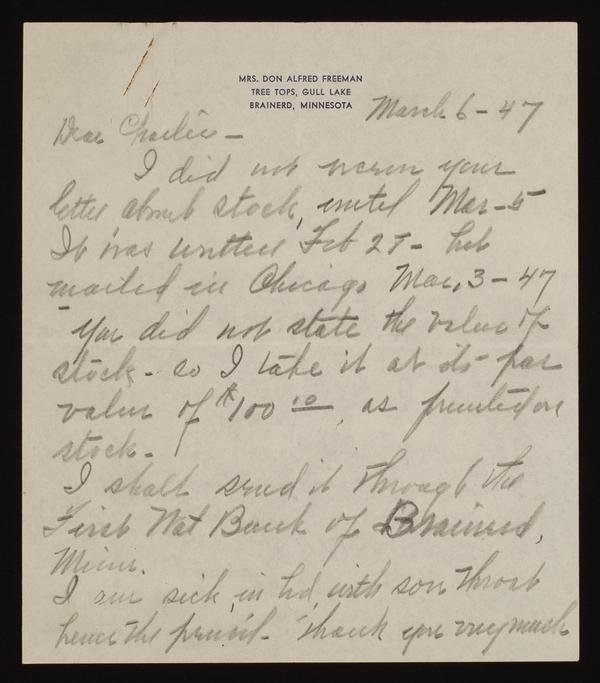 MRS. DON ALFRED FREEMAN
TREE TOPS, GULL LAKE
BRAINERD, MINNESOTA
March 6 - 47
Dear Charlie -
I did not receive your
letter about stock, until Mar - 5
It was written Feb 28 - but
mailed in Chicago Mar, 3 - 47
You did not state the value of
stock - so I take it at its par
value of $100 , as printed on
stock -
I shall send it through the
First Nat Bank of Brainerd,
Minn.
I am sick, in bed, with sore throat
hence the pencil - Thank you very much